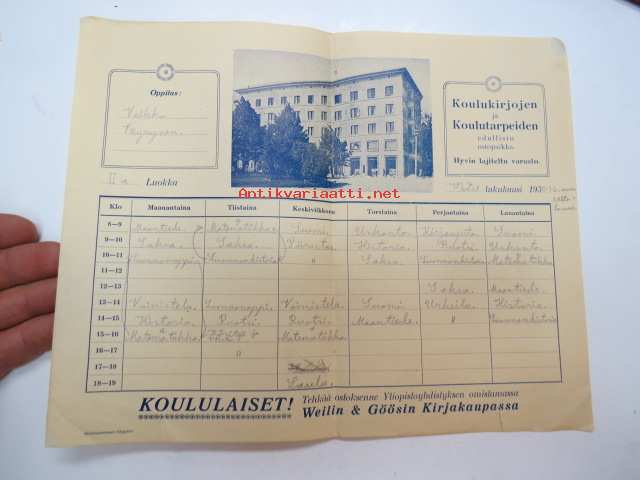 Oppilas:
II a Luokka
Koulukirjojen
ja
Koulutarpeiden
edullisin
ostopaikka
Hyvin lajiteltu varasto.
Antikvariaatti.net
lukukausi 193
Klo Maanantaina Tiistaina Keskiviikkona Torstaina Perjantaina Lauantaina
8—9 Maantiede. Matematiikka Suomi. Uskonto. Kirjoitus Suomi.
9—10 Saksa. Saksa. Piirustus Historia. Ruotsi. Uskonto.
10—11 Luonnonoppi " Saksa. Luonnonhistoria Matematiikka
11—12
12—13 Saksa. Maantiede.
13—14 Voimistelu. Luonnonoppi. Voimistelu. Suomi. Urheilu. Historia.
14—15 Historia. Ruotsi. Ruotsi. Maantiede. " Luonnonhistoria
15—16 Matematiikka Matematiikka
16—17 "
17—18
18—19 Laulu.
KOULULAISET! Tehkää ostoksenne Yliopistoyhdistyksen omistamassa
Weilin & Göösin Kirjakaupassa